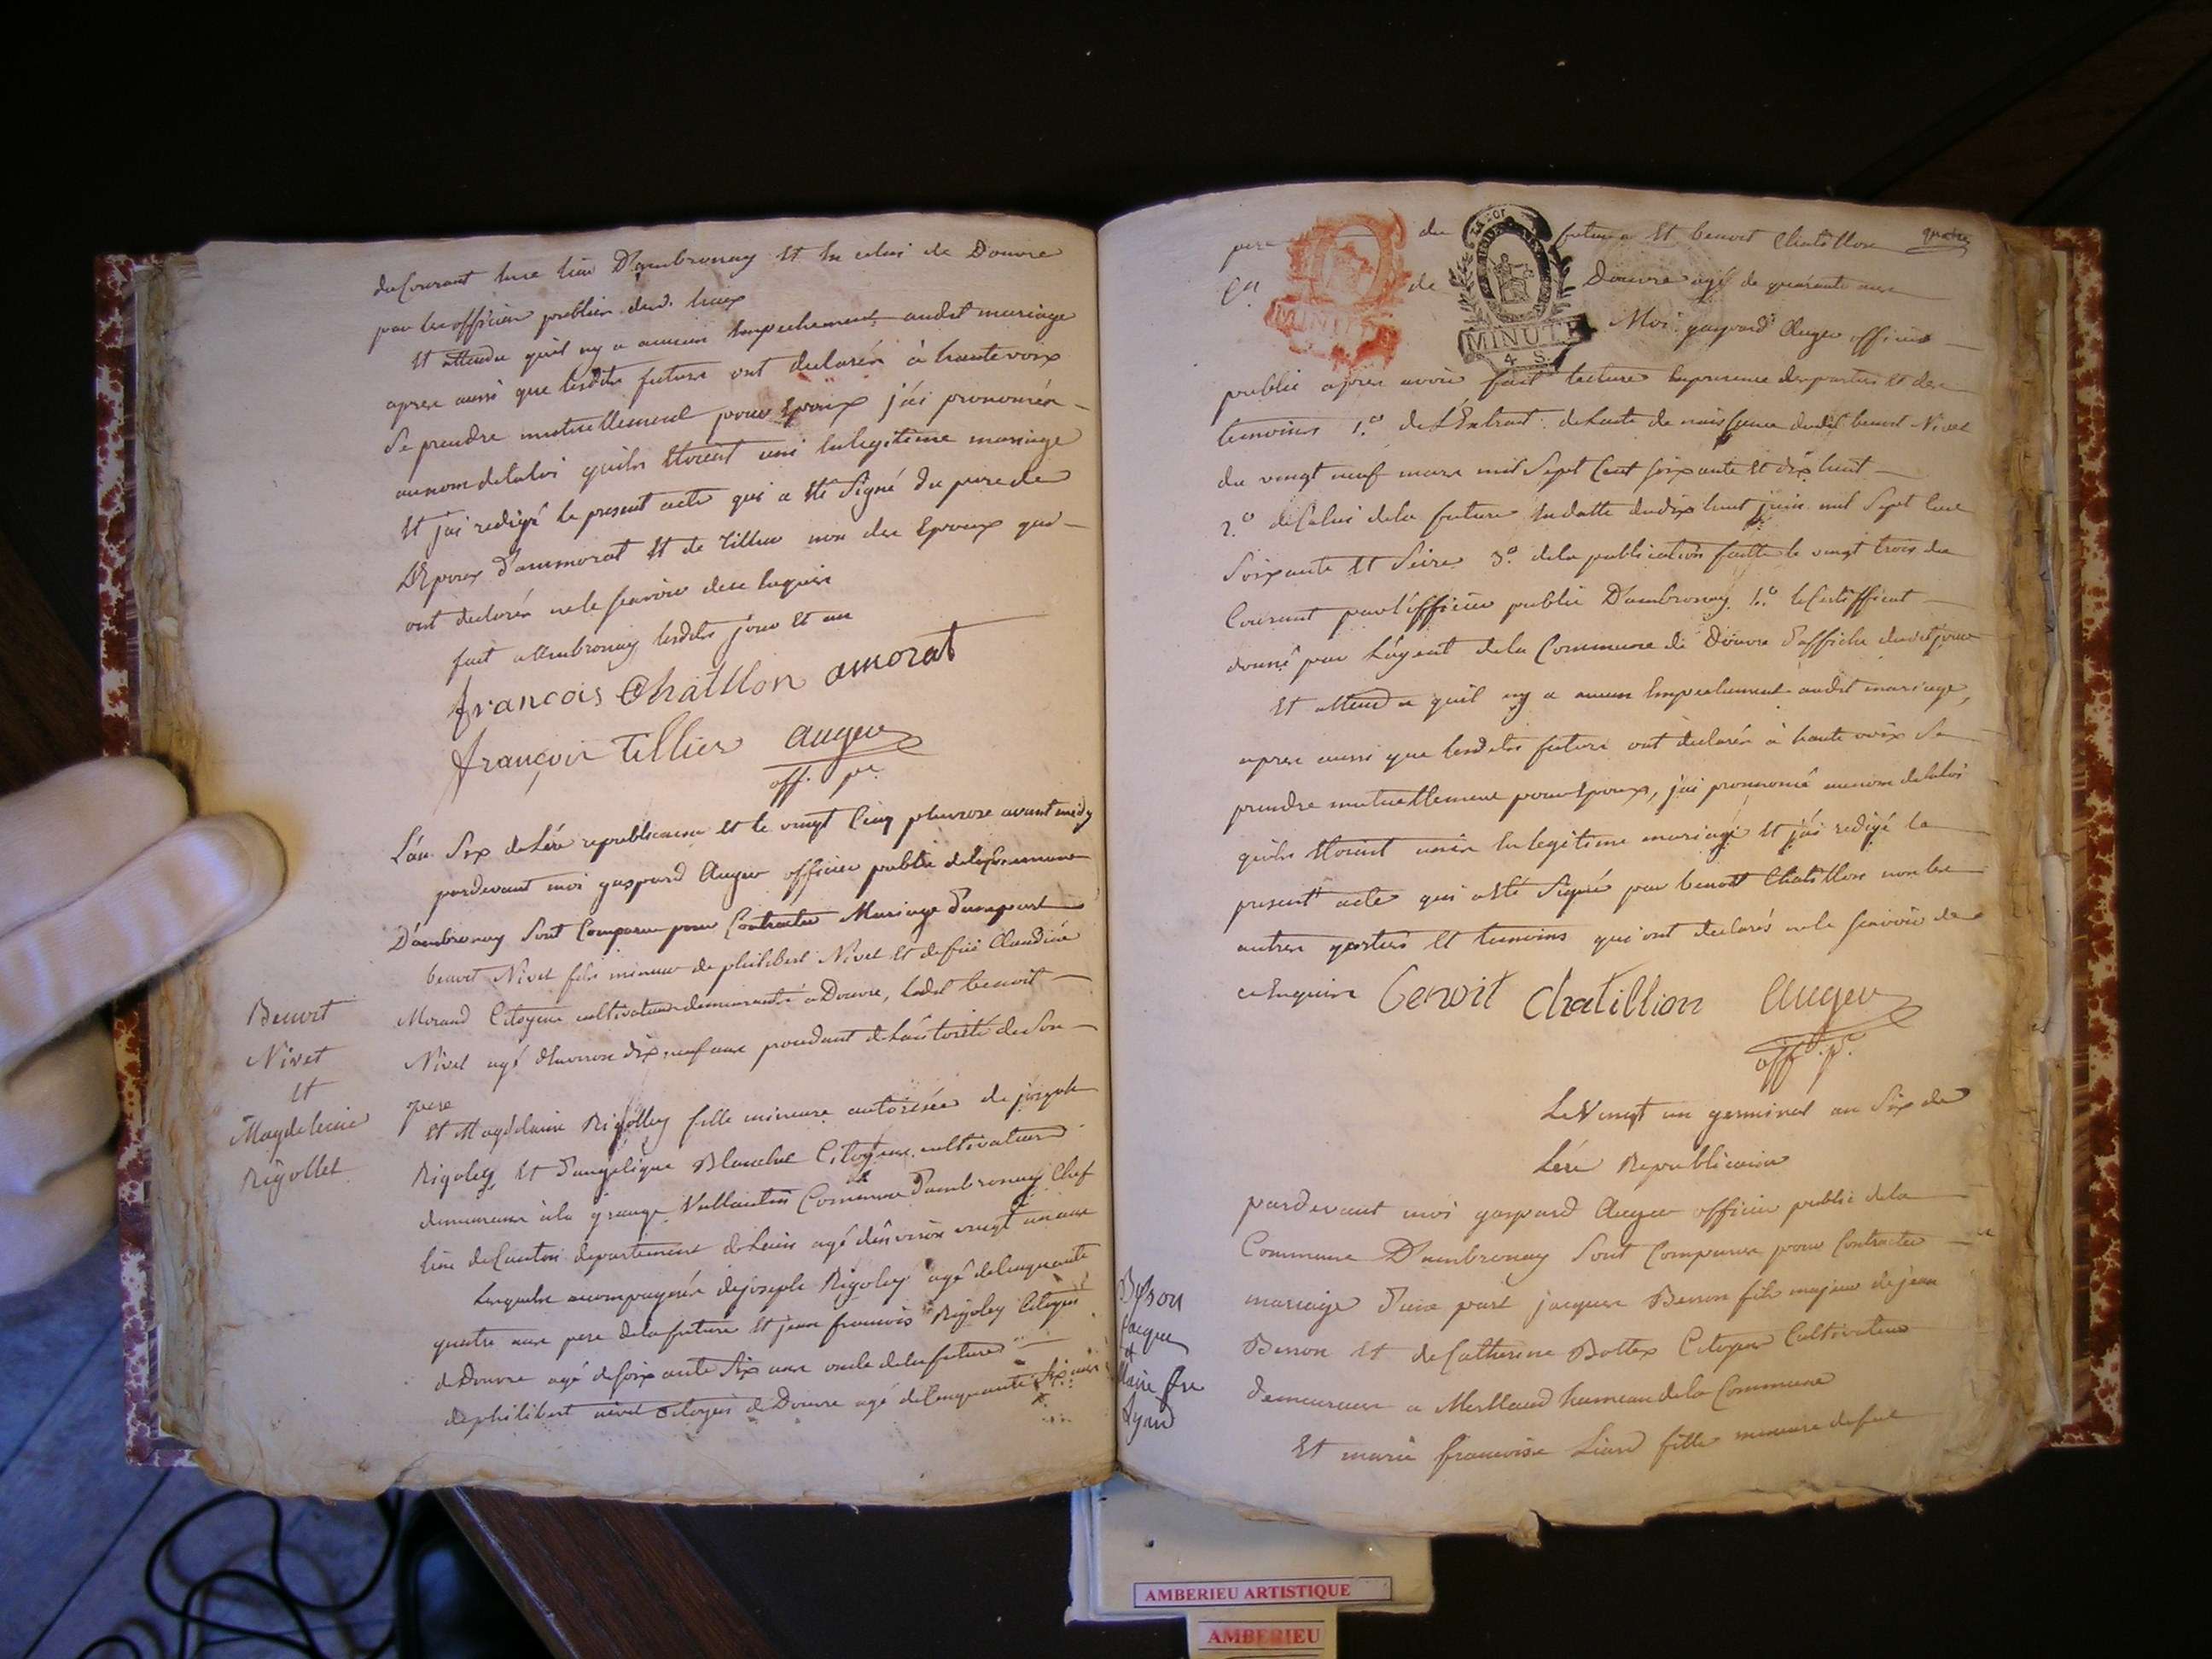 du Courant lune lieu D'ambronay Et la celui de Douvre
par les officier public desd. lieux
Et attendu quil ny a aucun Empechement audit mariage
apres aussi que lesdits futurs ont declarés à haute voix
Se prendre mutuellement pour Epoux j'ai prononcér
au nom de la loi quils Etoient uni en legitime mariage
Et j'ai redigé le present acte qui a Eté Signé du pere de
L'Epoux d'ammorat Et de Tillier non des Epoux qui
ont declarés ne le scavoir de ce Enquis
fait a Ambronay lesdits jour Et an
françois Chatillon amorat
françois Tillier auger
off. pc.
L'an Six de L'ére republicaine Et le vingt Cinq pluviose avant midy
pardevant moi gaspard Auger officier public de la Commune
D'ambronay Sont Comparu pour Contracter Mariage d'une part
benoit Nivet fils mineur de philibert Nivet Et de fue Claudine
Morand Citoyens cultivateurs demeurants a Douvre, Ledit benoit
Nivet agé d'Environ dix neuf ans procedant de L'autorité de Son
pere
Benoit
Nivet
Et
Magdeleine
Rigollet
Et Magdelaine Rigolley fille mineure autorisée de joseph
Rigoley Et d'angelique Blanche Citoyens cultivateurs
demeurans à la grange Vallantin Commune d'ambronay Chef
lieu de Canton departement de Lain agé d'environ vingt un ans
Lesquels accompagnés de joseph Rigoley agé de Cinquante
quatre ans pere de la future Et jean francois Rigoley Citoyen
de Douvre agé de soixante Six ans oncle de la future
de philibert nivet Citoyen de Douvre agé de Cinquante Six ans
pere du futur Et benoit Chatillon quatre
Cn de Douvre agé de quarante ans
MINUTE
LA LOI
MINUTE
4 S.
Moi gaspard Auger officier
public apres avoir fait lecture En presence des parties Et des
temoins 1.o de L'Extrait de Lacte de naissance dudit benoit Nivet
du vingt neuf mars mil Sept Cent soixante Et dix huit
2.o de Celui de la future En datte du dix huit juin mil Sept Cent
Soixante Et Seize 3.o de la publication faitte le vingt trois du
Courant par l'officier public D'ambronay 4.o le Certifficat
donné par L'agent de la Commune de Douvre d'affiche dudit jour
Et attendu quil ny a aucun Empechement audit mariage,
apres aussi que lesdits futurs ont declarés à haute voix Se
prendre mutuellement pour Epoux, j'ai prononcé au nom de la loi
quils Etoient unis En legitime mariage Et j'ai redigé le
present acte qui a Eté Signé par benoit Chatillon non les
autres parties Et temoins qui ont declarés ne le scavoir de
ce Enquis benoit Chatillion Auger
off. pc.
Le Vingt un germinal an Six de
Lére Republicaine
pardevant moi gaspard Auger officier public de la
Commune D'ambronay Sont Comparus pour Contracter
mariage d'une part jacques Besson fils majeur de jean
Besson Et de Catherine Bottex Citoyen Cultivateur
demeurans a Merlland hameau de la Commune
Et marie francoise Liard fille mineure de fut
Besson
jacque
et
Marie fse
Lyard
AMBERIEU ARTISTIQUE
AMBERIEU